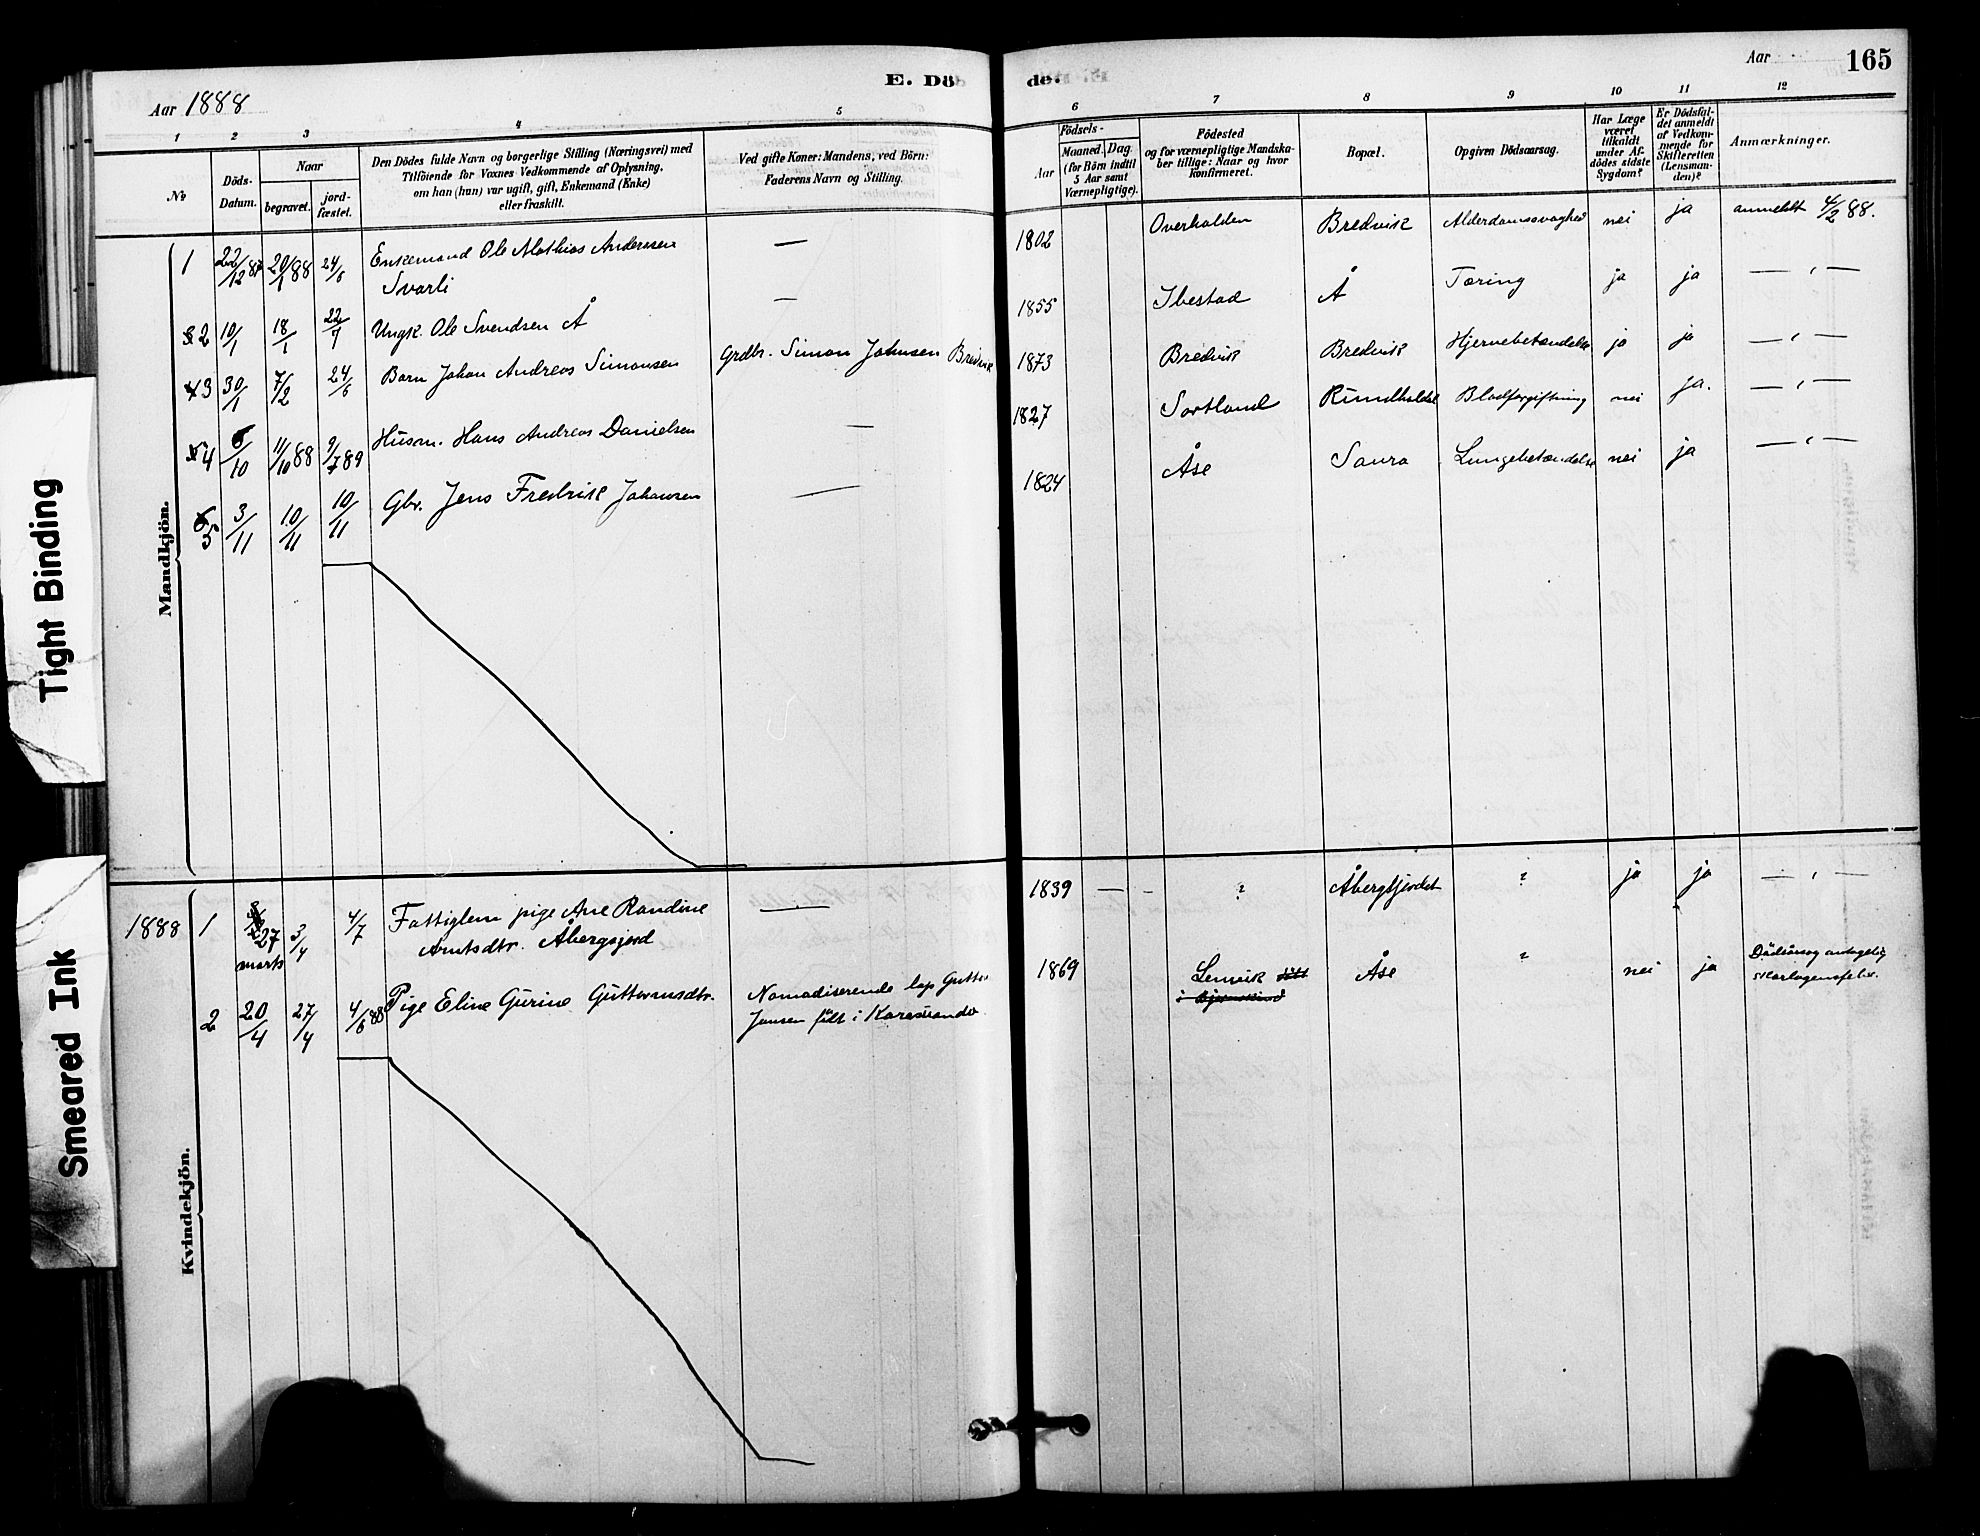 E. Dö
de.
Aar
165
Aar 1888
1 2 3 4 5
6 7 8 9 10 11 12
No
Döds-
Datum.
Naar
begravet.
jord-
fæstet.
Den Dödes fulde Navn og borgerlige Stilling (Næringsvei) med
Tilföiende for Voxnes Vedkommende af Oplysning,
om han (hun) var ugift, gift, Enkemand (Enke)
eller fraskilt.
Ved gifte Koner: Mandens, ved Börn:
Faderens Navn og Stilling.
Födsels-
Aar
Maaned. Dag.
(for Börn indtil
5 Aar samt
Værnepligtige).
Födested
og for værnepligtige Mandska-
ber tillige: Naar og hvor
konfirmeret.
Bopæl.
Opgiven Dödsaarsag.
Har Læge
været
tilkaldt
under Af-
dödes sidste
Sygdom?
Er Dödsfal-
det anmeldt
af Vedkom-
mende for
Skifteretten
(Lensman-
den)?
Anmærkninger.
Mandkjön.
1 22/12 87 20/1 88 24/6 Enkemand Ole Mathias Andersen — 1802 Overhalden Bredvik Alderdomssvaghed nei ja anmeldt 4/2 88.
Svarli
2 10/1 18/1 22/7 Ungk. Ole Svendsen Å — 1855 Ibestad Å Tæring ja ja — " —
3 30/1 7/2 24/6 Barn Johan Andreas Simonsen Grdbr. Simon Johnsen Bredvik 1873 Bredvik Bredvik Hjernebetændelse ja ja — " —
4 6/10 11/10 88 9/7 89 Husm. Hans Andreas Danielsen — 1827 Sortland Rundholdet Blodforgiftning nei ja. — " —
5 3/11 10/11 10/11 Gbr. Jens Fredrik Johansen — 1824 Åse Saura Lungebetændelse nei ja — " —
Kvindekjön.
1888 1 27 marts 3/4 4/7 Fattiglem pige Ane Randine — 1839 — - ? Åbergsjordet ? ja ja — " —
Arntsdtr. Åbergsjord
2 20/4 27/4 4/6 88 Pige Eline Gurine Guttormsdtr. Nomadiserende lap Guttor 1869 Lenvik Åse ? nei ja Dødsårsag antagelig
Jansen født i Karesuando skarlagensfeber.
Tight Binding
Smeared Ink